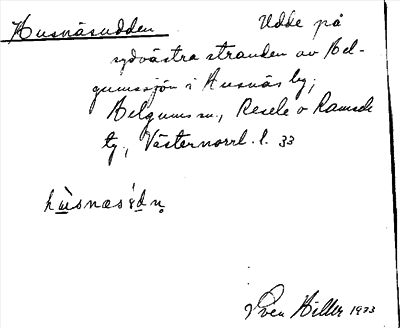 Husnäsudden Udde på
sydvästra stranden av Bel-
gumssjön i Husnäs by;
Helgums sn., Resele o Ramsele
tg., Västernorrl. l. 33
Sven Hiller 1973